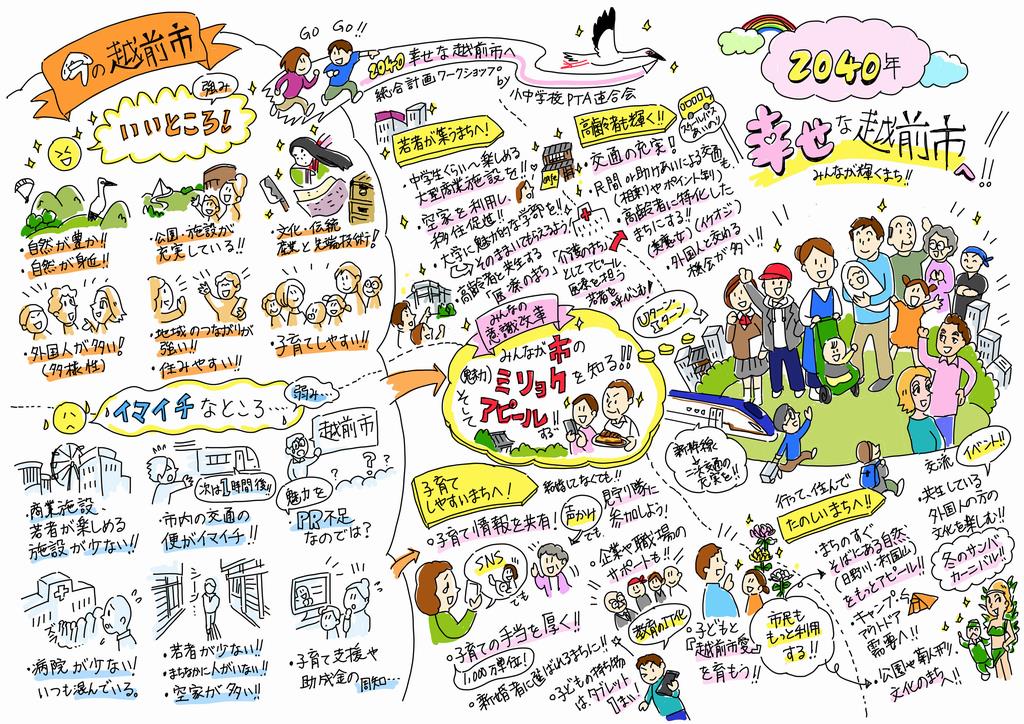 今の越前市
強み
いいところ!
・自然が豊か!!
・自然が身近!!
・公園、施設が
充実している!!
・文化・伝統
産業と先端技術!
・外国人が多い!
(多様性)
・地域のつながりが
強い!!
・住みやすい!!
・子育てしやすい!!
弱み…
イマイチなところ…
・商業施設、
若者が楽しめる
施設が少ない!!
次は1時間後!!
・市内の交通の
便がイマイチ!!
越前市
?
?
?
魅力を
PR不足
なのでは?
・病院が少ない!
いつも混んでいる。
シーン…
・若者が少ない!!
・まちなかに人がいない!!
・空家が多い!!
・子育て支援や
助成金の周知…
GO GO!!
2040幸せな越前市へ
総合計画ワークショップ
by
小中学校PTA連合会
若者が集うまちへ!
・中学生くらいへ楽しめる
大型商業施設を!!
・空家を利用し、
移住促進!!
・大学に魅力的な学部を!!
そのままいてもらえるよう!
・高齢者と共生する
「医療のまち」
「介護のまち」
としてアピール
医療を担う
若者を
高齢者も輝く!!
スクールバス
あいのり
cafe
・交通の充実!
・民間の助けあいによる交通も
(相乗りやポイント制)
・高齢者に特化した
まちにする!!
(美魔女)(イケオジ)
・外国人と交わる
機会が多い!!
Uターン
Iターン
みんなの
意識改革
みんなが市の
(魅力)
ミリョクを知る!!
そして
アピールする!!
子育て
しやすいまちへ!
・子育て情報を共有!
SNS
でも
声かけ
でも
見守り隊に
参加しよう!
・企業や職場の
サポートも!!
・子育ての手当を厚く!!
1,000万単位!
・新婚者に選ばれるまちに!!
教育のIT化
・子どもの持ち物
はタブレット
1まい!
・子どもと
『越前市愛』
を育もう!!
2040年
幸せな越前市へ!!
みんなが輝くまち!!
新幹線
二次交通の
充実を!!
行って、住んで
たのしいまちへ!
・まちのすぐ
そばにある自然
(日野川・村国山)
をもっとアピール!!
・キャンプ
アウトドア
需要へ!!
・公園や朝市…
文化のまちへ!!
市民を
もっと利用
する!!
交流
イベント!!
・共生している
外国人の方の
文化を楽しむ!!
冬のサンバ
カーニバル!!